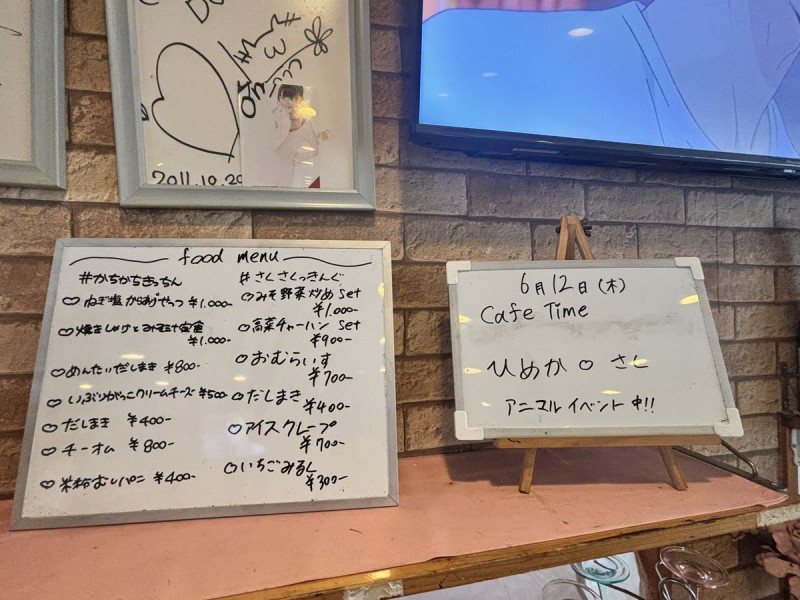 2011.10.20
food menu
#かちかちきっちん
ねぎ塩からあげせっつ ¥1.000-
焼きしゃけとみそ汁定食
¥1.000-
めんたいだしまき ¥800-
いぶりがっこクリームチーズ ¥500
だしまき ¥400-
チーオム ¥800-
米粉むしパン ¥400-
#さくさくっきんぐ
みそ野菜炒め set
¥1.000-
高菜チャーハン set
¥900-
おむらいす
¥700-
だしまき
¥400-
アイスクレープ
¥700-
いちごみるく
¥300-
6月12日(木)
Cafe Time
ひめか ○ さく
アニマルイベント中!!